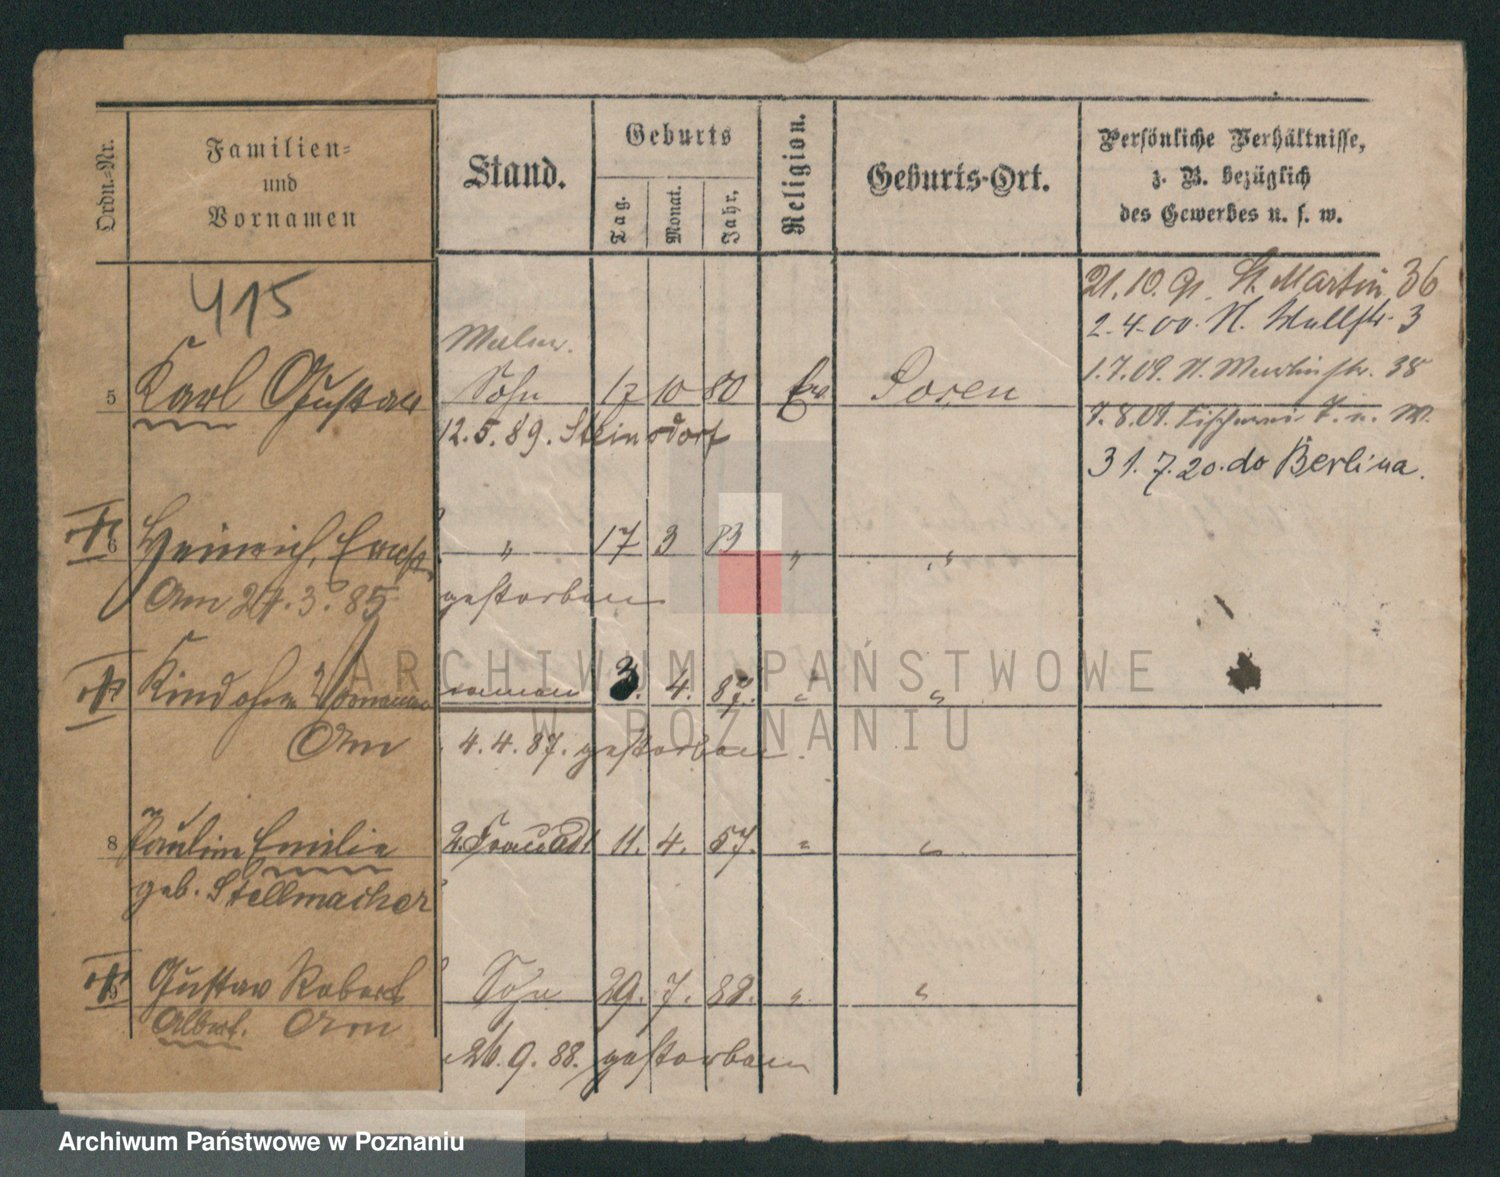 Ordn.-Nr.
Familien-
und
Vornamen
Stand.
Geburts
Tag.
Monat.
Jahr.
Religion.
Geburts-Ort.
Persönliche Verhältnisse,
z. B. bezüglich
des Gewerbes u. s. w.
415
21. 10. 91. St. Martin 36
2.4.00. N. Wallstr. 3
1.7.09. N. 38
5 Karl Gustav Maler. Sohn 17 10 80 Ev Posen
12.5.89. Steinsdorf
7.8.09. Fischerei 7. u. W.
31.7.20. do Berlina.
6 Heinrich, Ernst " 17 3 83 " "
Am 24.3.85 gestorben
Kind ohne Vornamen 3. 4. 87. " "
Am 4.4.87. gestorben.
8 Pauline Emilie 2. Frau ad1 11. 4. 57. " "
geb. Stellmacher
9 Gustav Robert Sohn 29. 7. 88. " "
Albert. Am 26.9.88. gestorben
ARCHIWUM PAŃSTWOWE
W POZNANIU
Archiwum Państwowe w Poznaniu